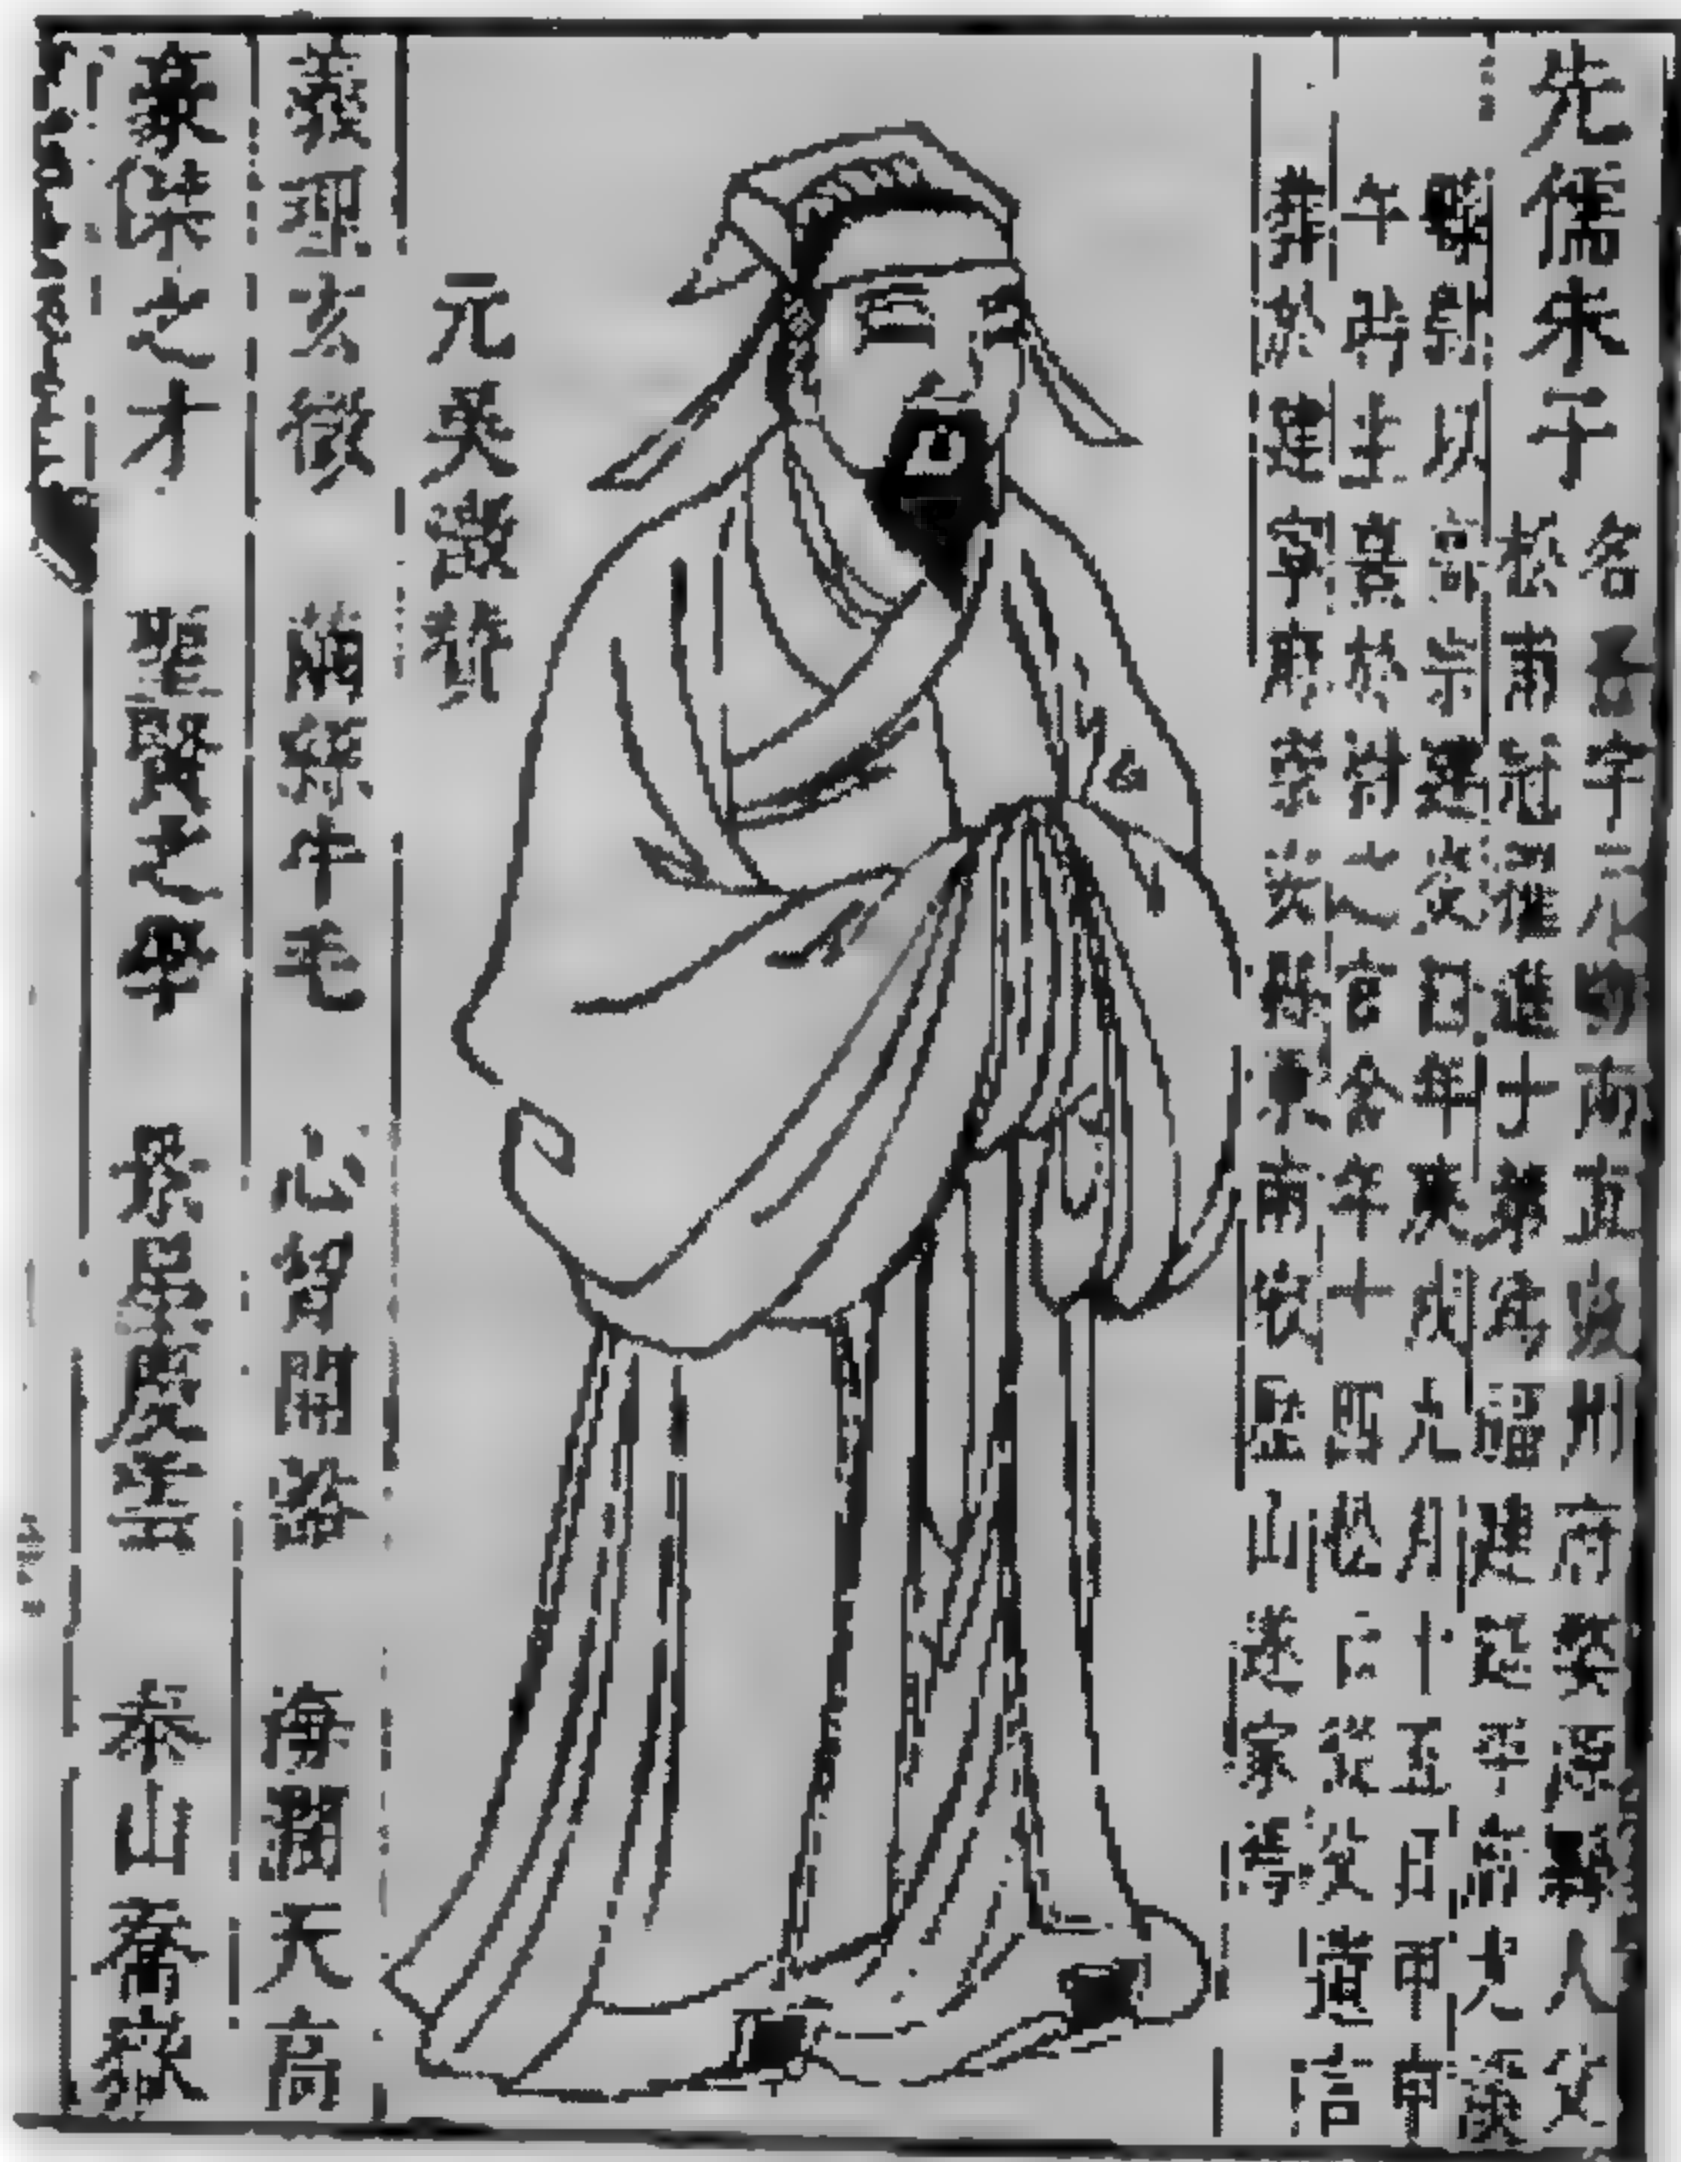 先儒朱子
名熹字元晦南直徽州府婺源縣人父
松甫冠擢進士第為福建延平府尤溪
縣尉以高宗建炎四年庚戌九月十五日甲申
午時生熹於尉之官舍年十四松亡從父遺言
葬於建寧府崇安縣東南
山遂家焉
元吳澂贊
義理玄微 繭絲牛毛 心胷開豁 海濶天高
豪傑之才 聖賢之學 景星慶雲 泰山喬嶽